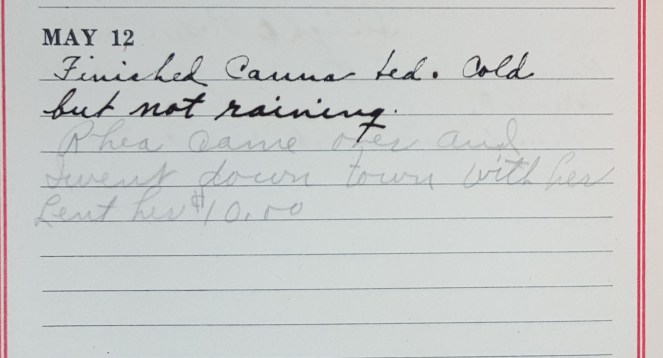 MAY 12
Finished Canna bed. Cold
but not raining.
Rhea came over and
I went down town with her
Lent her $10.00